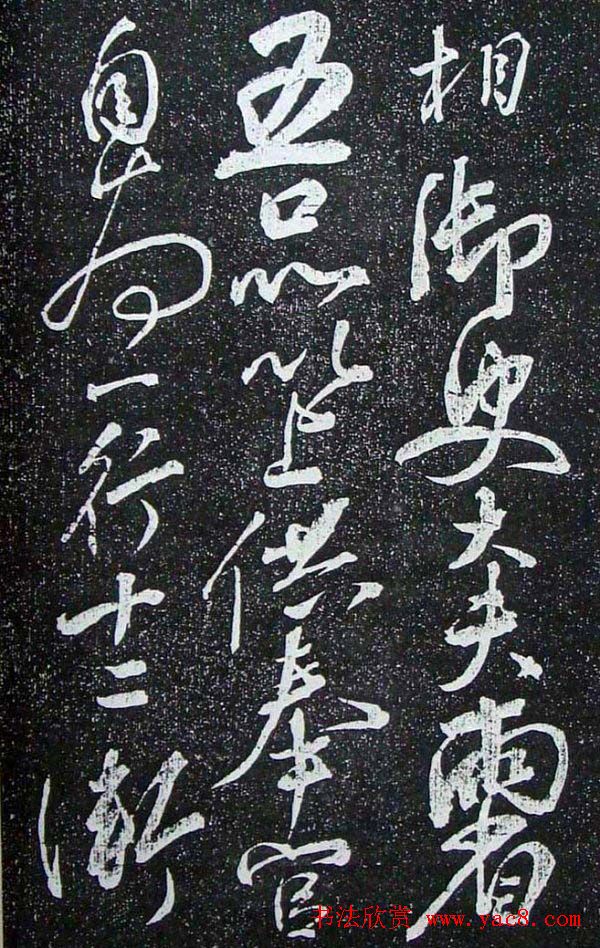 相御史大夫兩省
五品以上供奉官
自為一行十二衛
书法欣赏 www.yac8.com